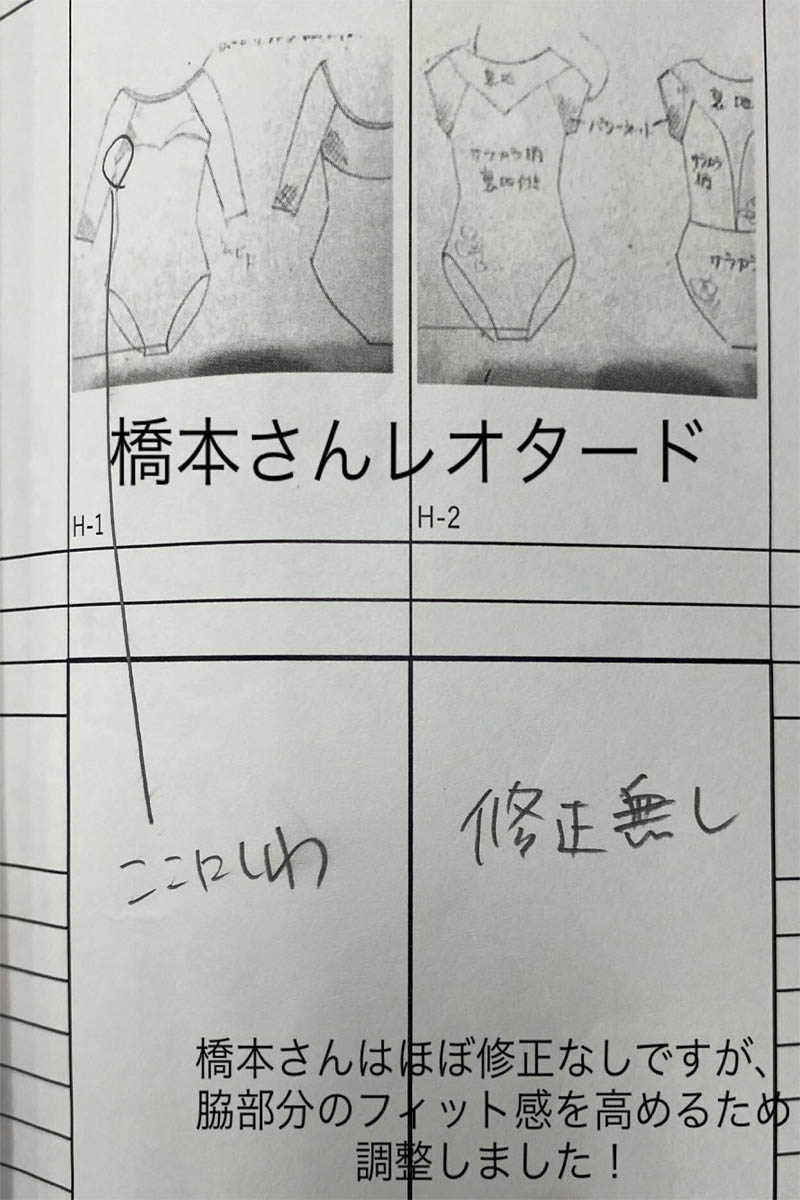 裏地
パワーネット
サクラ柄
裏地付き
裏地
サクラ
柄
橋本さんレオタード
H-1
H-2
ここにしわ
修正無し
橋本さんはほぼ修正なしですが、
脇部分のフィット感を高めるため
調整しました！